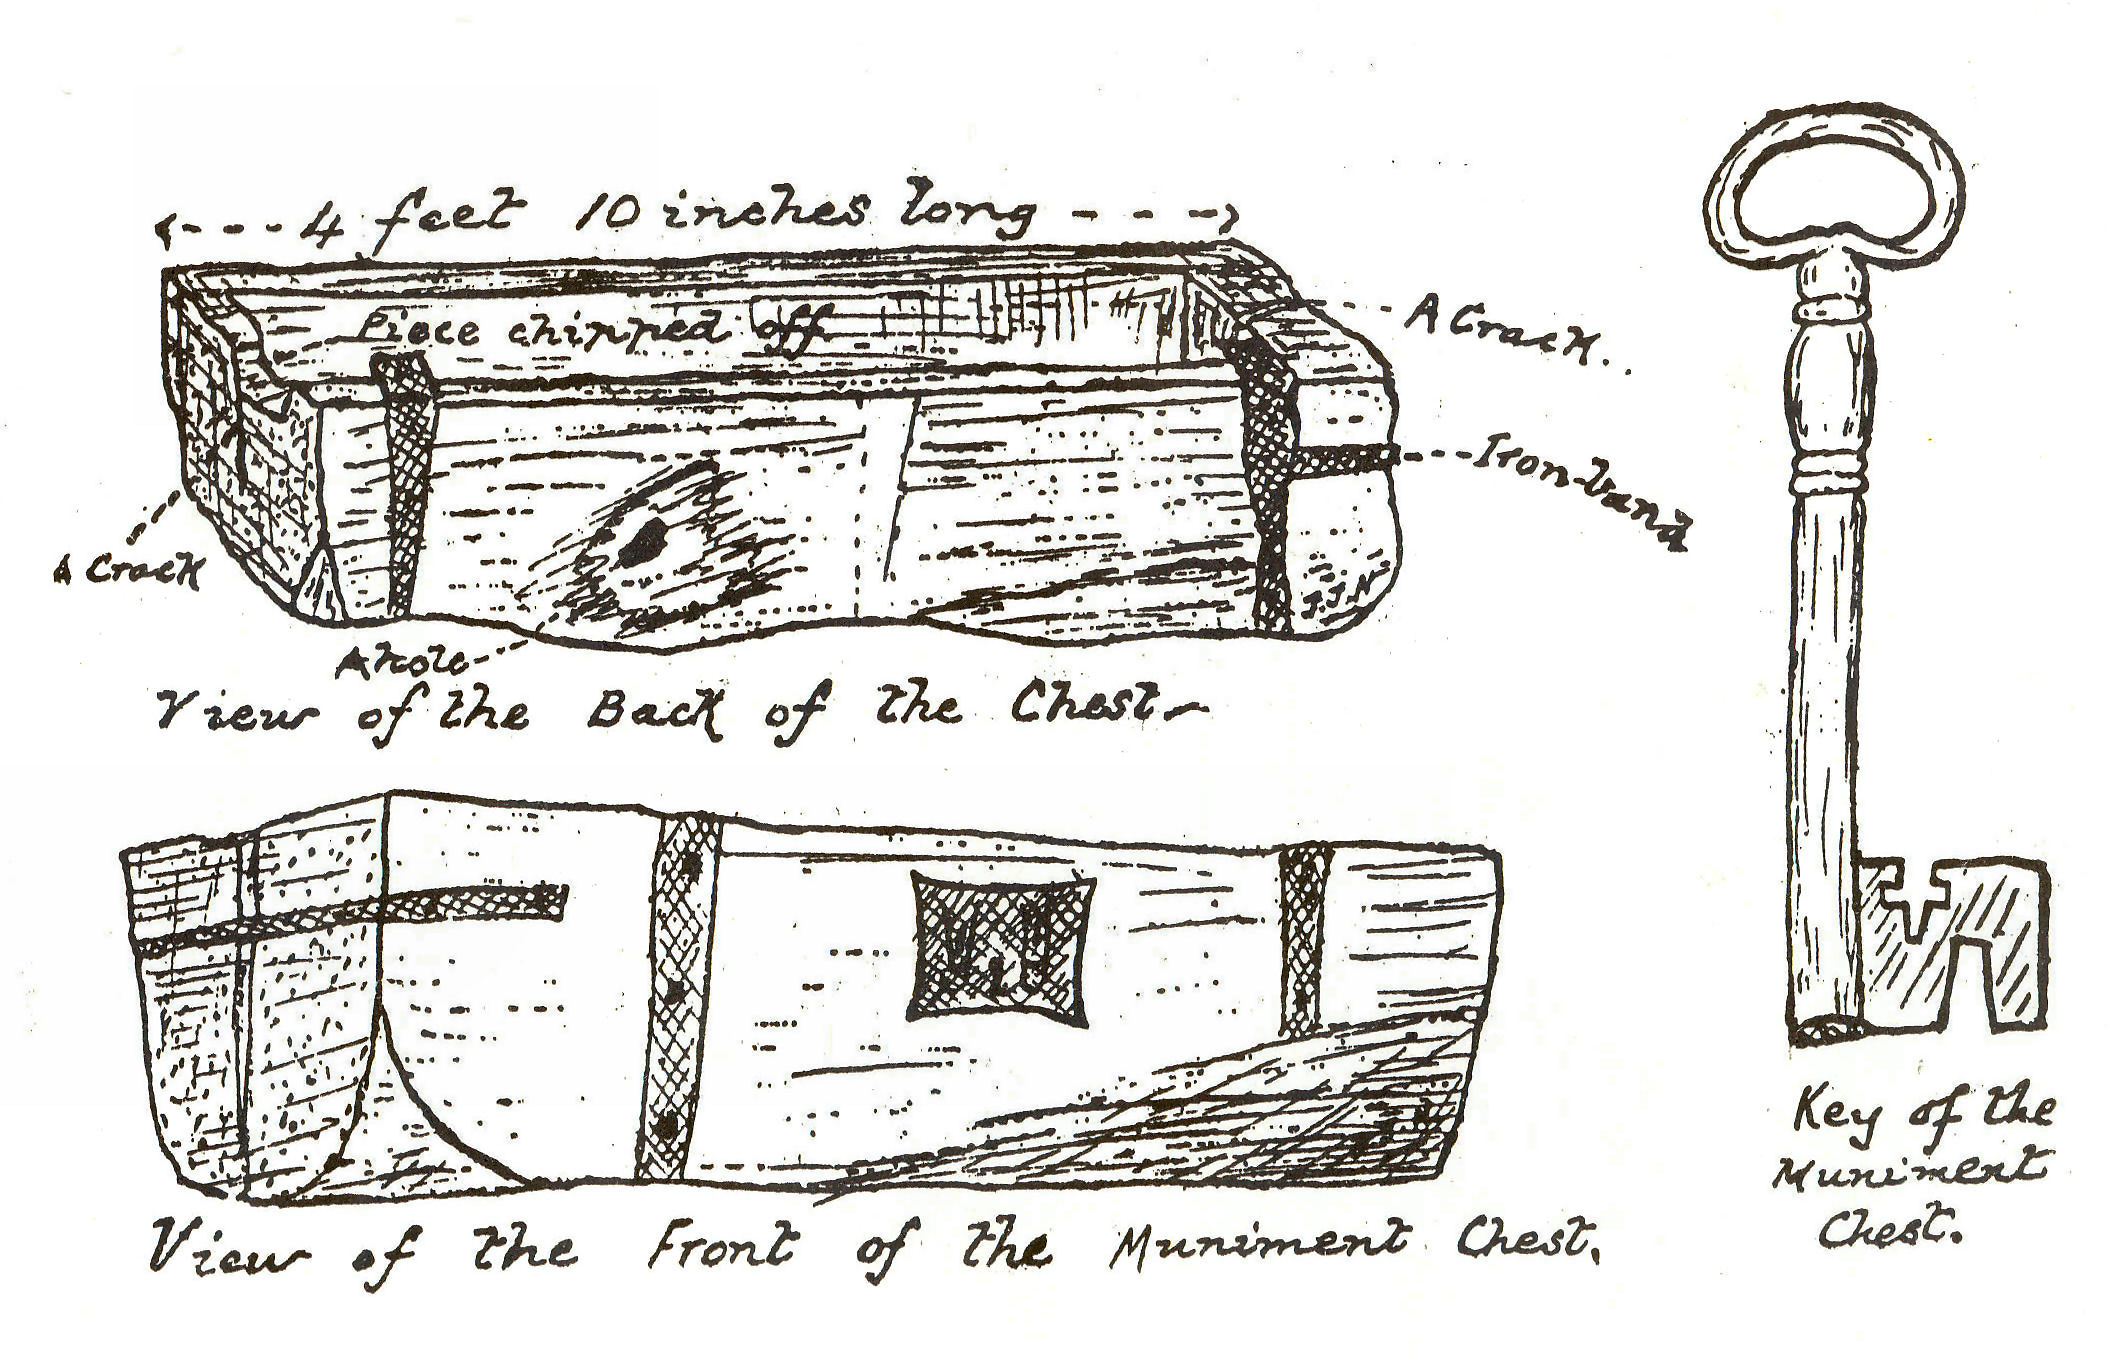 4 feet 10 inches long
Piece chipped off
A Crack.
Iron-band
A Crack
J.J.N
A hole
View of the Back of the Chest
View of the Front of the Muniment Chest.
Key of the
Muniment
Chest.